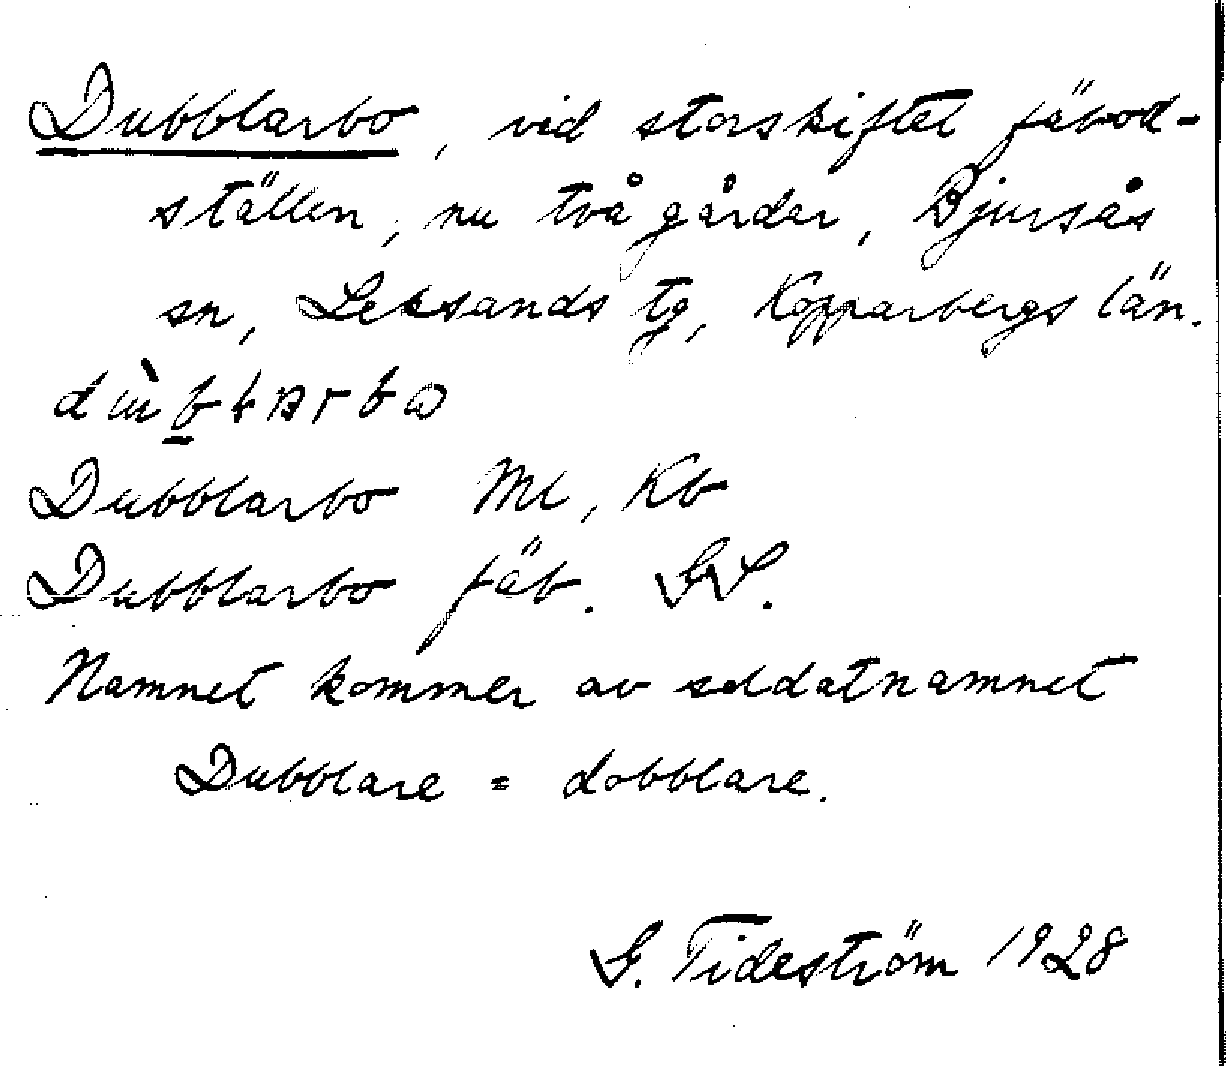 Dubblarbo, vid storskiftet fäbod-
ställen, nu två gårdar, Bjursås
sn, Leksands tg, Kopparbergs län.
Dubblarbo Ml, Kb
Dubblarbo fäb. GS.
Namnet kommer av soldatnamnet
Dubblare = dobblare.
G. Tideström 1928